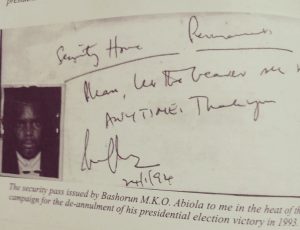 Security House
Permanent
Please, let the bearer see me
ANYTIME. Thank you
24/1/94
The security pass issued by Bashorun M.K.O. Abiola to me in the heat of the
campaign for the de-annulment of his presidential election victory in 1993.